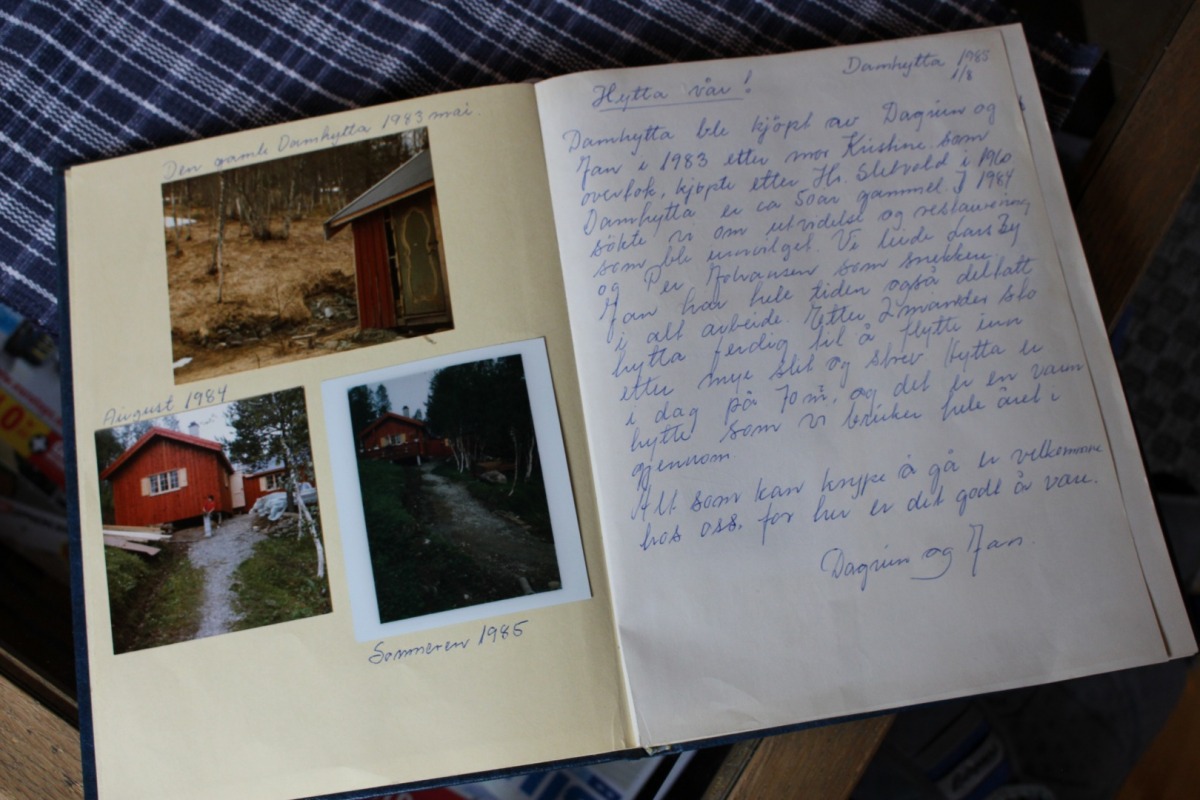 Den gamle Damhytta 1983 mai.
August 1984
Sommeren 1985
Damhytta 1985
1/8
Hytta vår!
Damhytta ble kjöpt av Dagrun og
Jan i 1983 etter mor Kristine som
overtok, kjøpte etter Hr. Sletvold i 1960
Damhytta er ca 50år gammel. I 1984
sökte vi om utvidelse og restaurering
som ble innvilget. Vi leide Lars By
og Per Johansen som snekkere
Jan har hele tiden også deltatt
i alt arbeide. Etter 2 måneder sto
hytta ferdig til å flytte inn
etter mye slit og strev Hytta er
i dag på 70 m², og det er en varm
hytte som vi bruker hele året i
gjennom.
Alt som kan krype å gå er velkommne
hos oss, for her er det godt år være.
Dagrun og Jan.